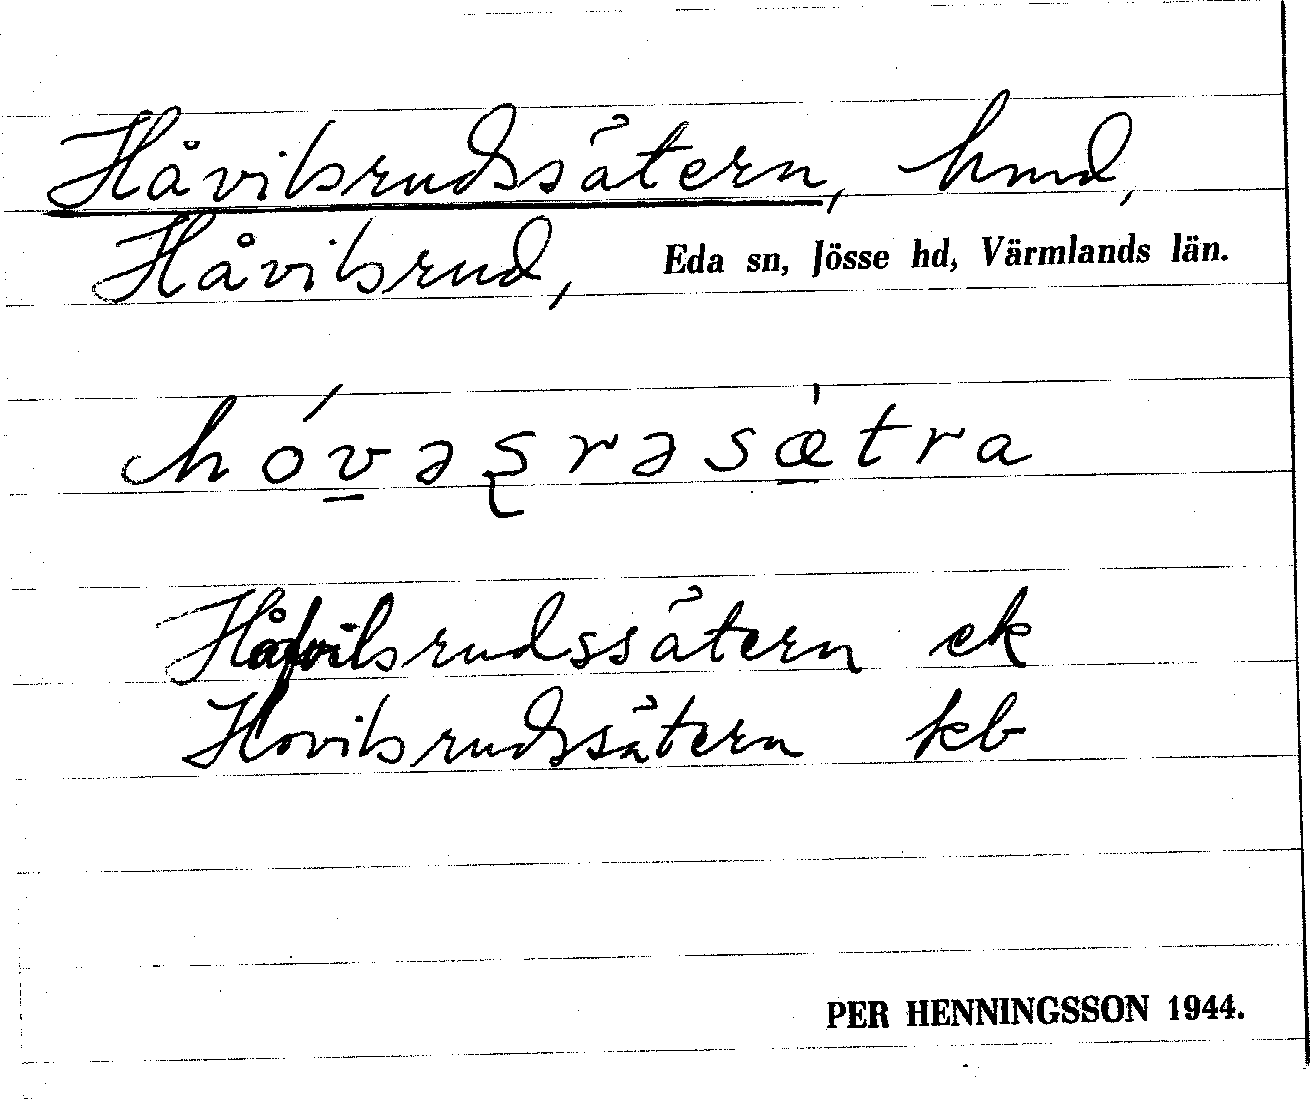 Håvilsrudssätern, hmd,
Håvilsrud, Eda sn, Jösse hd, Värmlands län.
hóv̠əʂrəsæ̠̍tra
Håfvilsrudssätern ek
Hovilsrudssätern kb
PER HENNINGSSON 1944.